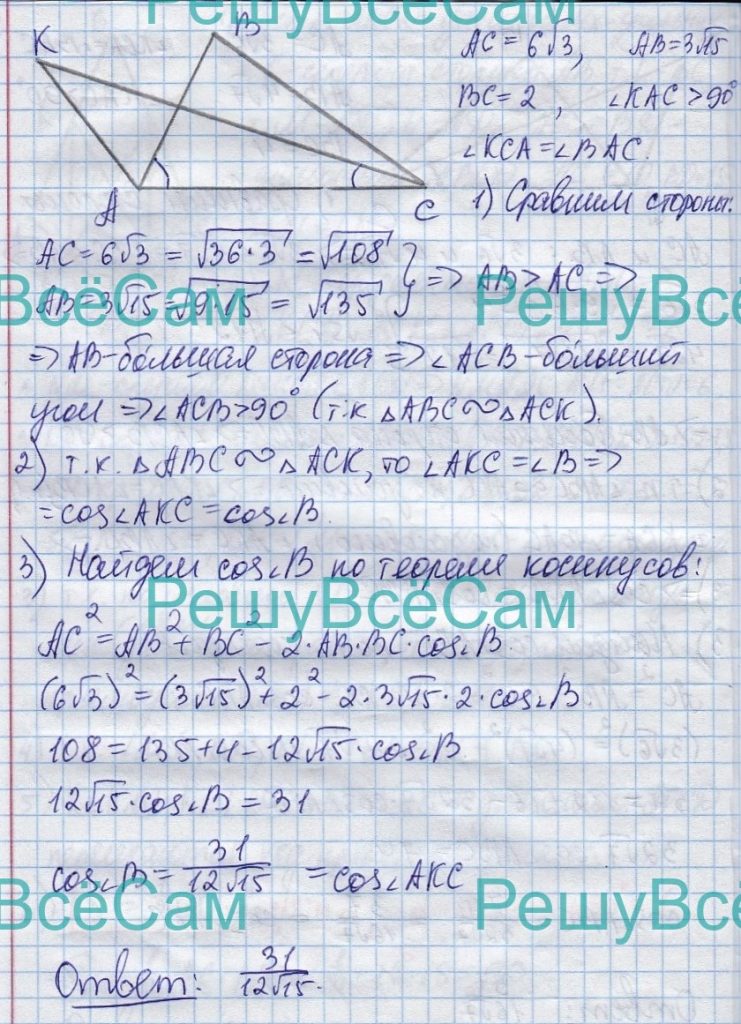 РешуВсёСам
K
B
A
C
AC = 6√3, AB = 3√15
BC = 2, ∠KAC > 90°
∠KCA = ∠BAC.
1) Сравним стороны:
AC = 6√3 = √36·3 = √108
AB = 3√15 = √9·15 = √135 } => AB > AC =>
ВсёСам
РешуВсё
=> AB - бо́льшая сторона => ∠ACB - бо́льший
угол => ∠ACB > 90° (т.к ΔABC ∾ ΔACK).
2) т.к. ΔABC ∾ ΔACK, то ∠AKC = ∠B =>
= cos∠AKC = cos∠B.
3) Найдем cos∠B по теореме косинусов:
РешуВсёСам
AC² = AB² + BC² - 2·AB·BC·cos∠B.
(6√3)² = (3√15)² + 2² - 2·3√15·2·cos∠B
108 = 135 + 4 - 12√15·cos∠B.
12√15·cos∠B = 31
cos∠B = 31/12√15 = cos∠AKC
ВсёСам
РешуВсё
Ответ: 31/12√15.